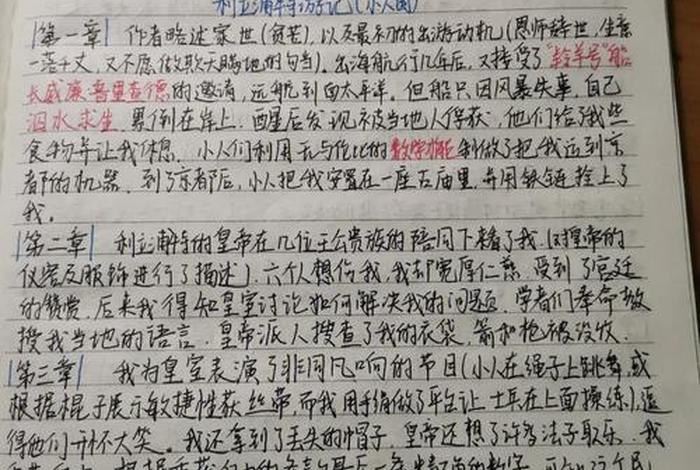 利立浦特游记(小人国)
|第一章| 作者略述家世(贫苦),以及最初的出游动机(恩师辞世,生意
一落千丈,又不愿做欺天瞒地的勾当)。出海航行几年后,又接受了"羚羊号"船
长威廉·普里查德的邀请,远航到西太平洋。但船只因风暴失事,自己
泅水求生,累倒在岸上。醒星后发现被当地人俘获,他们给了我些
食物并让我休息。小人们利用无与伦比的数学 制做了把我运到京
都的机器。到了京都后,小人把我安置在一座古庙里,并用铁链拴上了
我。
|第二章| 利立浦特的皇帝在几位王公贵族的陪同下来看了我。(对皇帝的
仪容及服饰进行了描述)。六个人想伤我,我却宽厚仁慈,受到了宫廷
的赞赏。后来我得知皇室讨论如何解决我的问题。学者们奉命教
授我当地的语言。皇帝派人搜查了我的衣袋,箭和枪被没收。
|第三章| 我为皇室表演了非同凡响的节目(小人在绳子上跳舞,或
根据棍子展示敏捷性获丝带,而我用手绢做了平台让士兵在上面操练),逗
得他们开怀大笑。我还拿到了丢失的帽子,皇帝还想了许多法子取乐。我